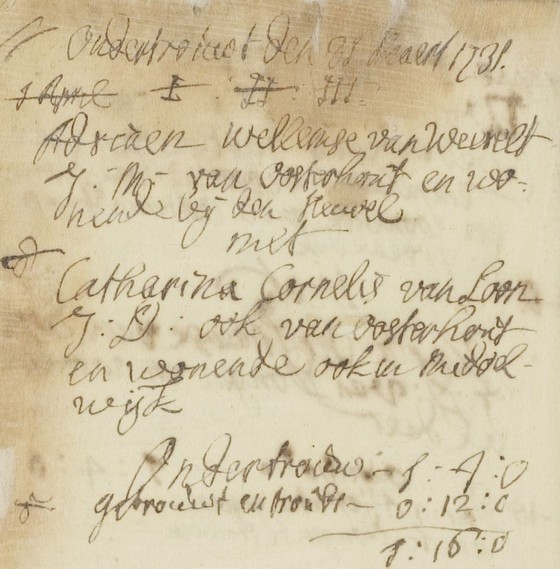 Ondertrouwt den 31 Maert 1731.
1 April I. II. III.
Adriaen Wellemse van Weerelt
J: M: van Oosterhout en wo-
nende bij den Heuvel
met
Catharina Cornelis van Loon
J: D: ook van Oosterhout
en wonende ook in Middel-
wijk
Ondertrouw - 1: 4: 0
getrouwt en - 0: 12: 0
1: 16: 0